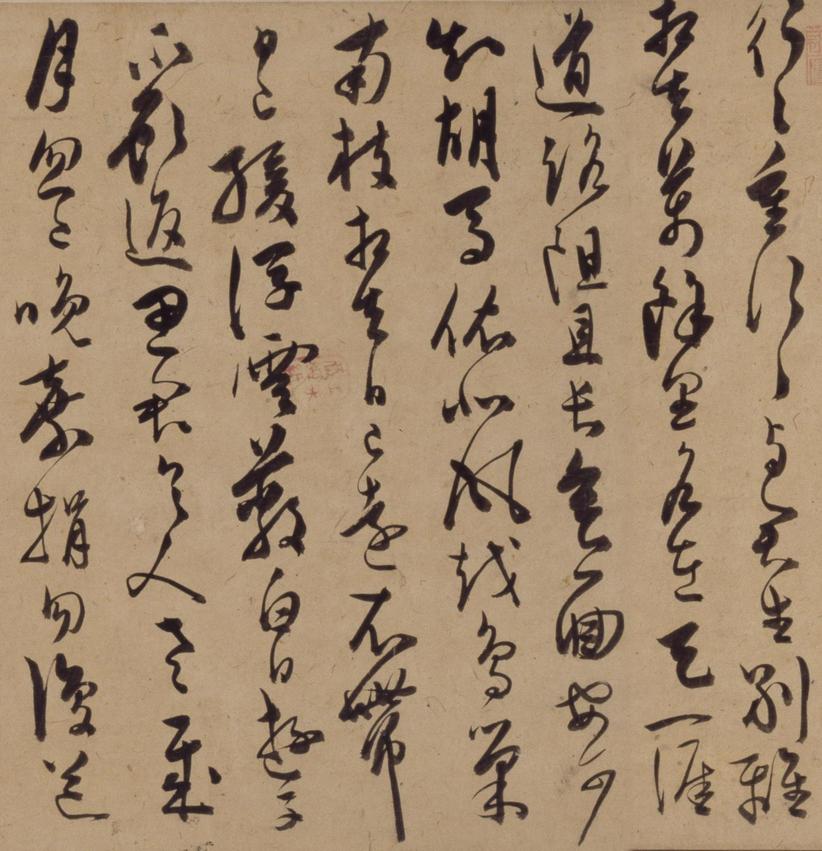 行〻重行〻與君生别離
相去萬餘里各在天一涯
道路阻且長會面安可
知胡馬依北風越鳥巢
南枝相去日已遠衣帶
日已緩浮雲蔽白日遊子
不顧返思君令人老歲
月忽已晚棄捐勿復道